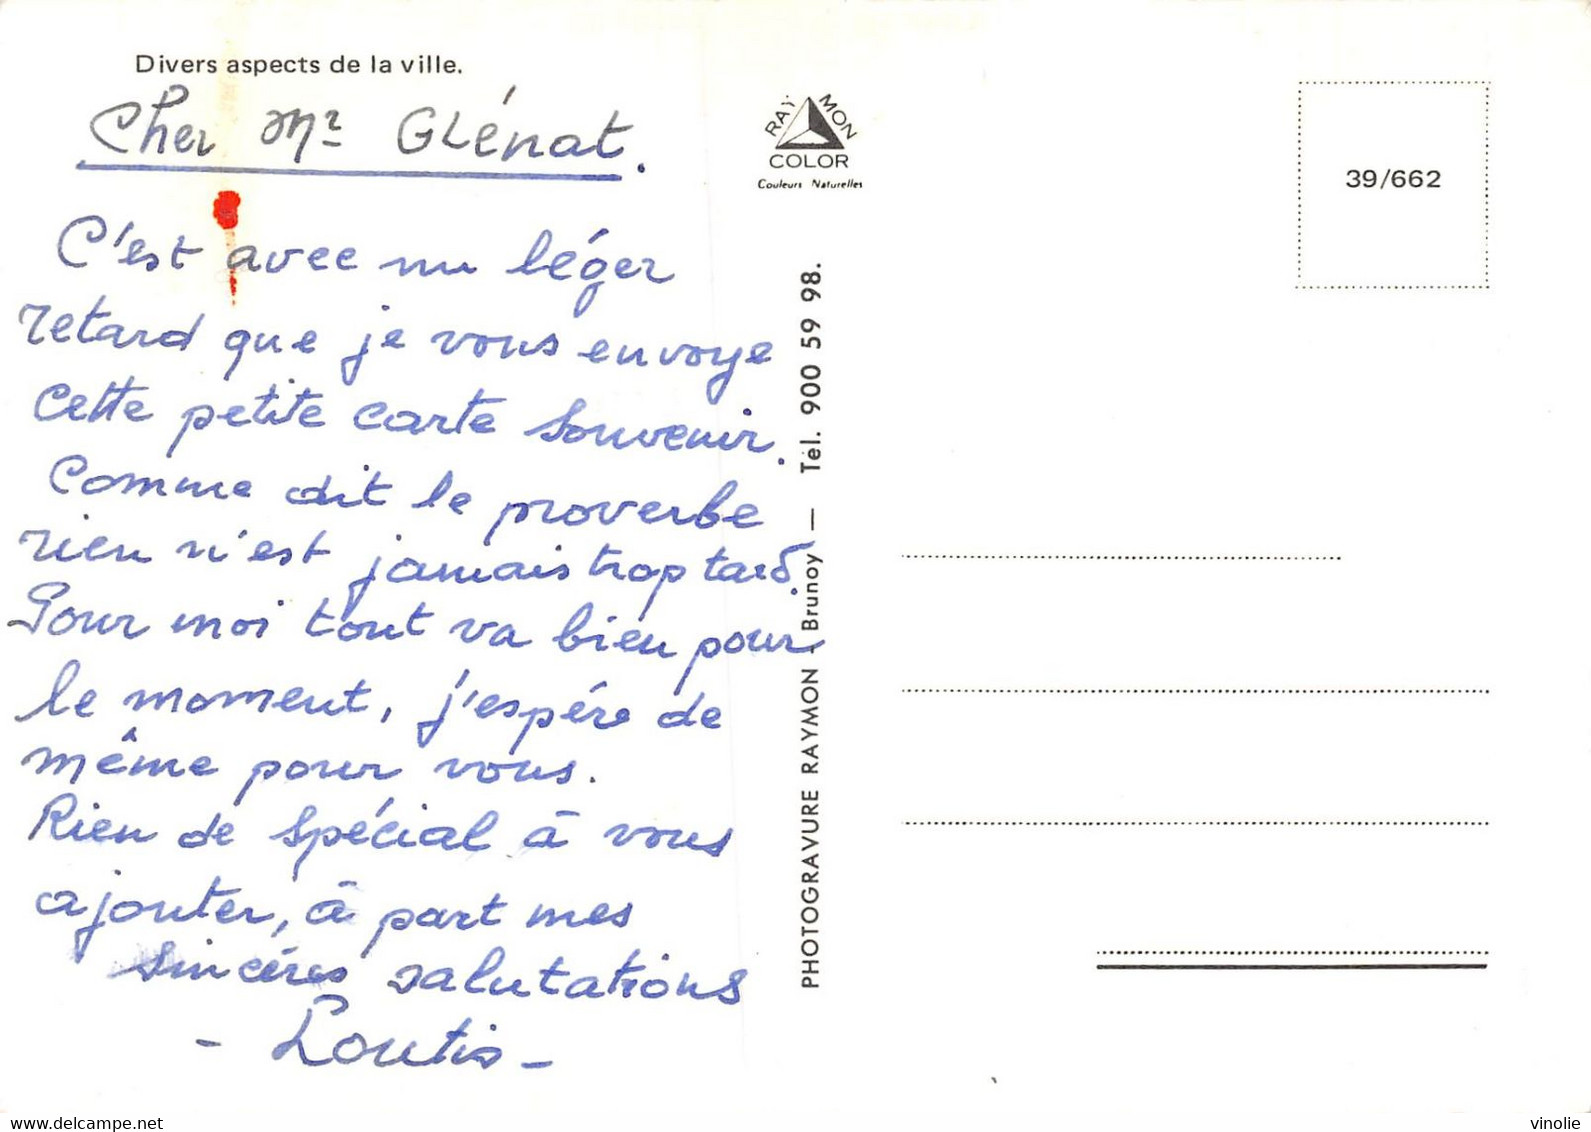 Divers aspects de la ville.
Cher Mr GLénat.
C'est avec un léger
retard que je vous envoye
cette petite carte souvenir.
Comme dit le proverbe
rien n'est jamais trop tard.
Pour moi tout va bien pour
le moment, j'espére de
même pour vous.
Rien de spécial à vous
ajouter, à part mes
sincéres salutations
- Loutis -
RAYMON
COLOR
Couleurs Naturelles
PHOTOGRAVURE RAYMON - Brunoy — Tél. 900 59 98.
39/662
delcampe.net
vinolie